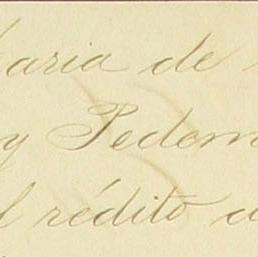 aria de
y Pedem
l rédito